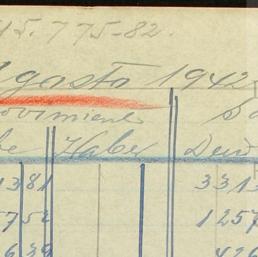 15.775-82.
Agosto 1942
ovimiento
be Haber Deud
1381 3313
752 1257
639 426